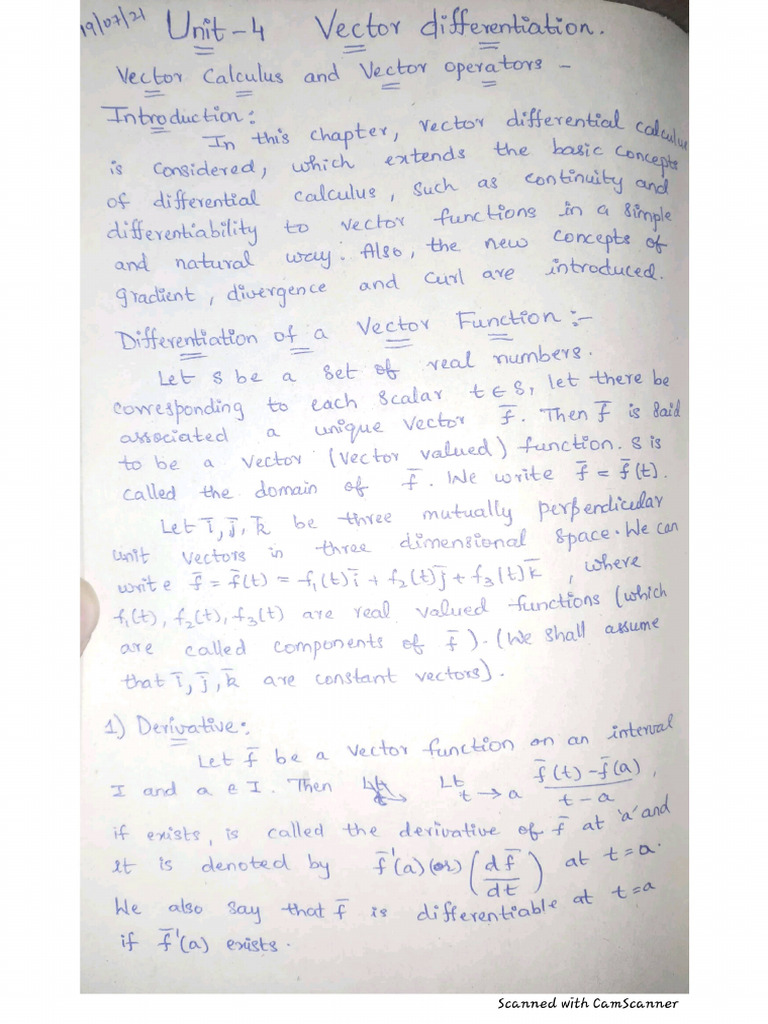 19/07/21
Unit-4 Vector differentiation.
Vector Calculus and Vector operators -
Introduction:
In this chapter, vector differential calculus
is considered, which extends the basic concepts
of differential calculus, such as continuity and
differentiability to vector functions in a simple
and natural way. Also, the new concepts of
gradient, divergence and curl are introduced.
Differentiation of a Vector Function:-
Let S be a set of real numbers.
corresponding to each scalar t ∈ S, let there be
associated a unique vector f̄. Then f̄ is said
to be a vector (vector valued) function. S is
called the domain of f̄. We write f̄ = f̄(t).
Let ī, j̄, k̄ be three mutually perpendicular
unit vectors in three dimensional space. We can
write f̄ = f̄(t) = f₁(t)ī + f₂(t)j̄ + f₃(t)k̄, where
f₁(t), f₂(t), f₃(t) are real valued functions (which
are called components of f̄). (We shall assume
that ī, j̄, k̄ are constant vectors).
1) Derivative:
Let f̄ be a vector function on an interval
I and a e I. Then Lt t→a f̄(t) - f̄(a) / t - a,
if exists, is called the derivative of f̄ at 'a' and
it is denoted by f̄'(a) (or) (df̄/dt) at t=a.
We also say that f̄ is differentiable at t=a
if f̄'(a) exists.
Scanned with CamScanner